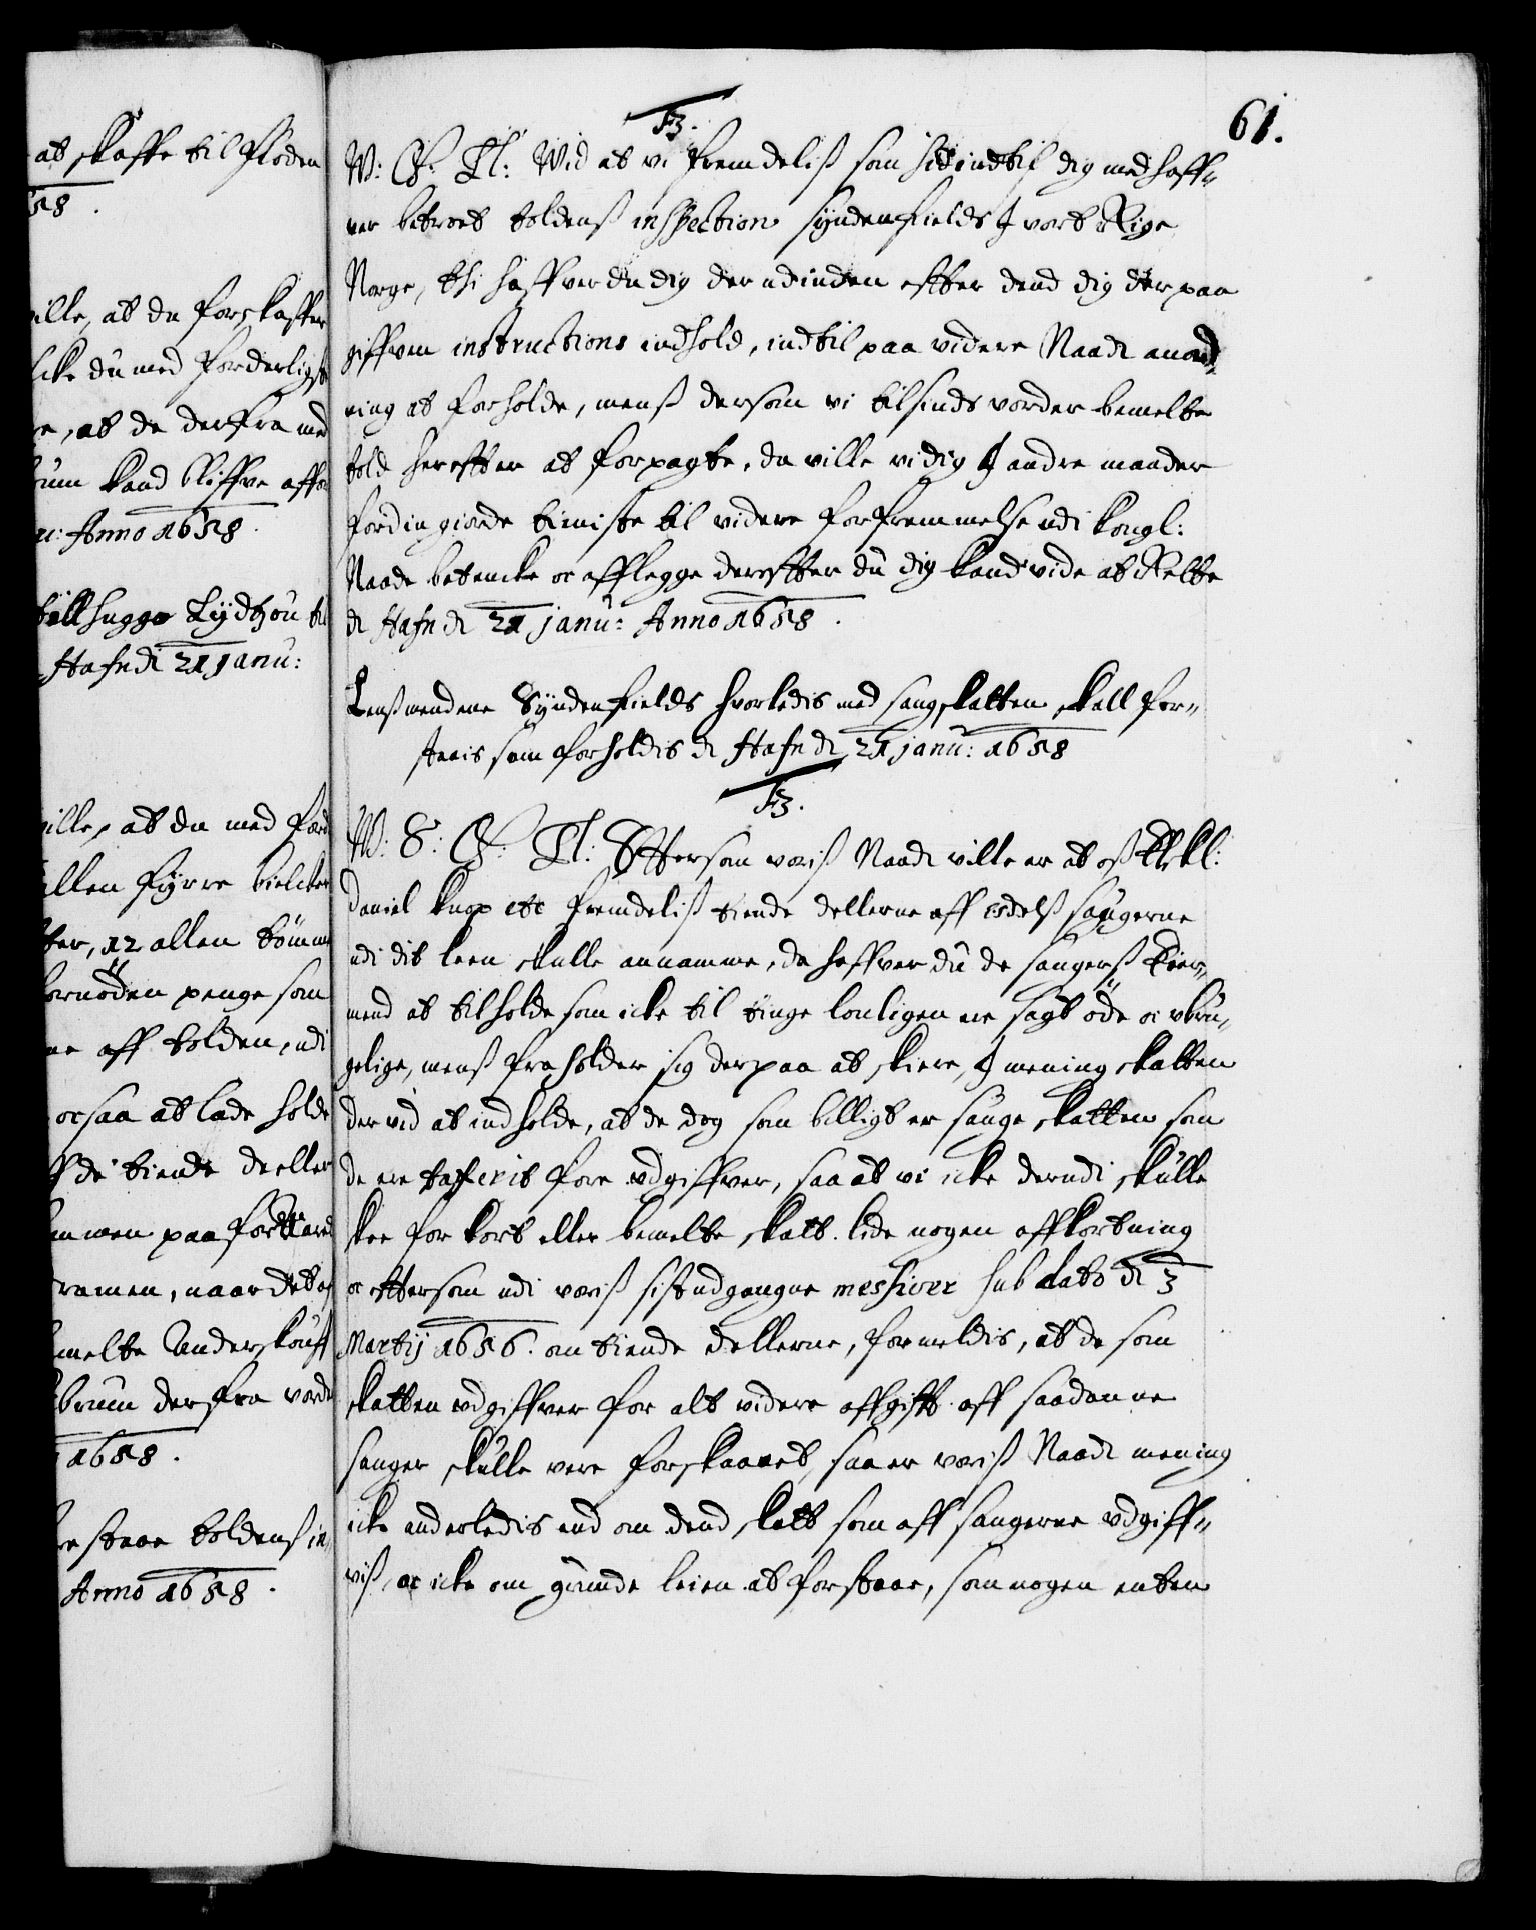 at skaffe til floden
58.
ville, at du forskaffer
icke du med forderligst
re, at de derfra med
kand bliffve affor
u: Anno 1658.
till hugge Lydzou til
Hafn di 21 janu:
ville, at du med ford
allen fyrre bielcker
ter, 12 allen tømmer
fornøden penge som
ne aff tolden, udi
ocsaa at lade holde
ff de tiende deeller
men paa forklared
ramen, naar det
melte Underskouff
derfra vorder
1658.
re staae toldens in
Anno 1658.
61.
F3.
W: G: Tl: Wid at vi fremdelis som hid indtil dig med haff„
ver betroet toldens inspection syndenfields I vort Rige
Norge, thi haffver du dig der udinden efter dend dig der paa
giffven instructions indhold, indtil paa videre Naadi anord„
ning at forholde, mens dersom vi tilsinds vorder bemelte
told herefter at forpagte, da ville vi dig I andre maader
for din giorde tieniste til videre forfremmelse udi kongl:
Naade betencke oc afflegge derefter du dig kand vide at Rette
di Hafn di 21 janu: Anno 1658.
Lensmendene Syndenfields hvorledis med saugskatten skall for„
staais som forholdis di Hafn di 21 janu: 1658
F3.
W: S: G: Tl: Eftersom voris Naadi ville er at os Elskl:
Daniel Knop etc fremdelis tiende dellerne aff Esdels saugerne
udi dit leen skulle annamme, da haffver du de saugers Eier„
mend at tilholde som icke til tinge louligen ere sagt øde oc ubru„
gelige, mens fraholder sig derpaa at skiere, I mening skatten
der ved at indholde, at de dog som billigt er sauge skatten som
de ere taxerit fore udgiffver, saa at vi icke derudi skulle
skee for kort eller bemelte skatt lide nogen affkortning
oc eftersom udi voris sist udgangne missiver sub dato di 3
Martij 1656. om tiende dellerne, formeldis, at de som
skatten udgiffver for alt videre affgift aff saadanne
sauger skulle vere forskaanet, saa er voris Naadi mening
icke anderledis end om dend skatt som aff saugerne udgiff„
vis, oc icke om grunde leien at forstaae, som nogen enten